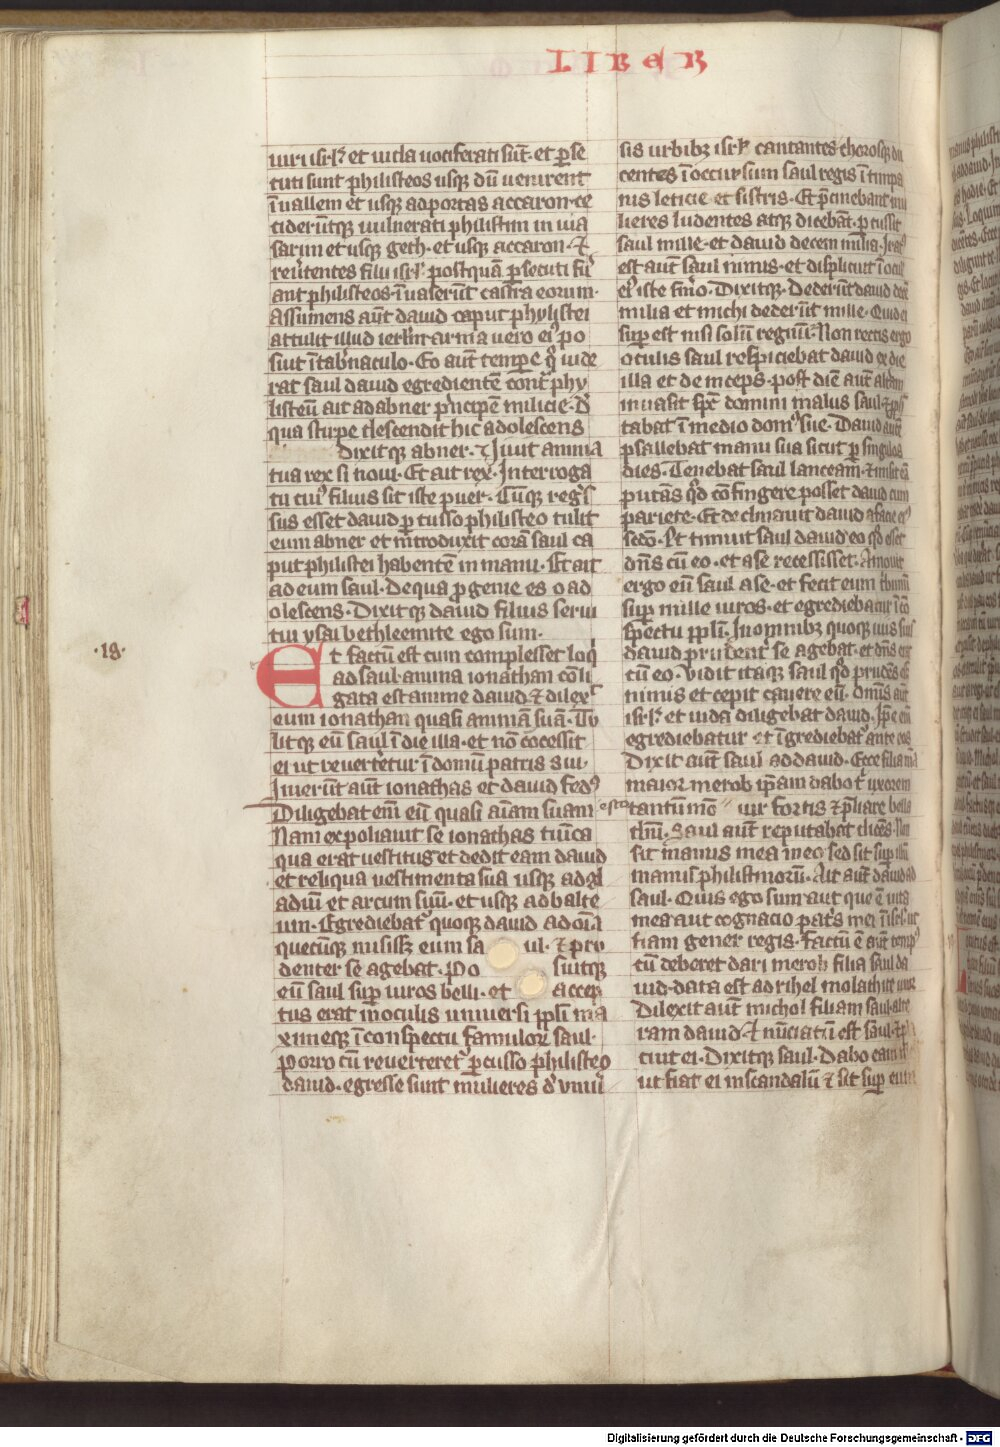 LIBER
uiri isrl' et iuda uociferati sūt· et ꝑse
cuti sunt philisteos usqꝫ dū uenirent
ī uallem et usqꝫ ad portas accaron· ce
ciderūtqꝫ uulnerati philistim in uia
sarim et usqꝫ geth· et usqꝫ accaron· ⁊
reuertentes filii isrl' postquā ꝑsecuti fu
ant philisteos· ī uaserūt castra eorum·
Assumens aūt dauid caput phylistei
attulit illud ierl'm· arma uero ei' po
suit ī tab'naculo· Eo aūt tempore q' uide
rat saul dauid egredientē cont' phy
listeū ait ad abner p'ncipem milicie· De
qua stirpe descendit hic adolescens
Dixitqꝫ abner· Viuit anima
tua rex si noui· Et ait rex· Interroga
tu cui' filius sit iste puer· Cūqꝫ regres
sus esset dauid ꝑcusso philisteo tulit
eum abner et introduxit corā saul ca
put philistei habentē in manu· Et ait
ad eum saul· De qua ꝓgenie es o ad
olescens· Dixitqꝫ dauid filius serui
tui ysai bethleemite ego sum·
·18·
Et factū est cum complesset loq'
ad saul· anima ionathan cōli
gata est anime dauid· ⁊ dilex'
eum ionathan quasi animā suā· Tu
litqꝫ eū saul ī die illa· et nō cōcessit
ei ut reuerteretur ī domū patris sui·
Inierūt aūt ionathas et dauid fed'
Diligebat eni eū quasi aīam suam
Nam expoliauit se ionathas tunica
qua erat uestitus et dedit eam dauid
et reliqua uestimenta sua usqꝫ ad gl
adiū et arcum suū· et usqꝫ ad balte
um· Egrediebat' quoqꝫ dauid ad oīa
quecūqꝫ misissꝫ eum sa ul· ⁊ pru
denter se agebat· Po suitqꝫ
eū saul sup' uiros belli· et accep
tus erat in oculis uniuersi ppl'i ma
ximeqꝫ ī conspectu famulorꝫ saul·
Porro cū reuerteret' ꝑcusso philisteo
dauid· egresse sunt mulieres d' uniu'
sis urbibꝫ isrl' cantantes chorosqꝫ du
centes ī occursum saul regis ī timpa
nis leticie et sistris· Et p'cinebant mu
lieres ludentes atqꝫ dicebāt· ꝑcussit
saul mille· et dauid decem milia· Irat'
est aūt saul nimis· et displicuit ī ocul'
ei' iste s'mo· Dixitqꝫ· Dederūt dauid decē
milia et michi dederūt mille· Quid ei
sup' est nisi solū regnū· Non rectis ergo
oculis saul respiciebat dauid ex die
illa et deinceps· post diē aūt alteram
inuasit sp'c domini malus saul· ⁊ ꝓph'
tabat ī medio dom' sue· Dauid aūt
psallebat manu sua sicut ꝑ singulos
dies· Tenebat saul lanceam· ⁊ misit eā
putās qd' cōfingere posset dauid cum
pariete· Et declinauit dauid a facie ei'
sc'do· Et timuit saul dauid eo qd' esset
dn̄s cū eo· et a se recessisset· Amouit
ergo eū saul a se· et fecit eum tbunū
sup' mille uiros· et egrediebatur ī cō
spectu ppl'i· In omnibꝫ quoqꝫ uiis suis
dauid prudent' se agebat· et dn̄s erat
cū eo· Vidit itaqꝫ saul qd' prudēs eēt
nimis et cepit cauere eū· Omnis aūt
isrl' et iuda diligebat dauid· Ip'e eni
egrediebatur et īgrediebat' ante eos
Dixit aūt saul ad dauid· Ecce filia mā
maior merob ip'am dabo t' uxorem
esto tantūmō uir fortis ⁊ p'liare bella
dn̄i· Saul aūt reputabat dicēs· Non
sit manus mea in eo· sed sit sup' illū
manus philistinorū· Ait aūt dauid ad
saul· Quis ego sum aut que ē uita
mea aut cognacio pat's mei ī isrl' ut
fiam gener regis· Factū ē aūt temp'
cū deberet dari merob filia saul da
uid· data est adrihel molathite uxor
Dilexit aūt michol filiam saul alte
ram dauid· Et nūciatū est saul· ⁊ pla
cuit ei· Dixitqꝫ saul· Dabo eam
ut fiat ei in scandalū ⁊ sit sup' eum
Digitalisierung gefördert durch die Deutsche Forschungsgemeinschaft - DFG